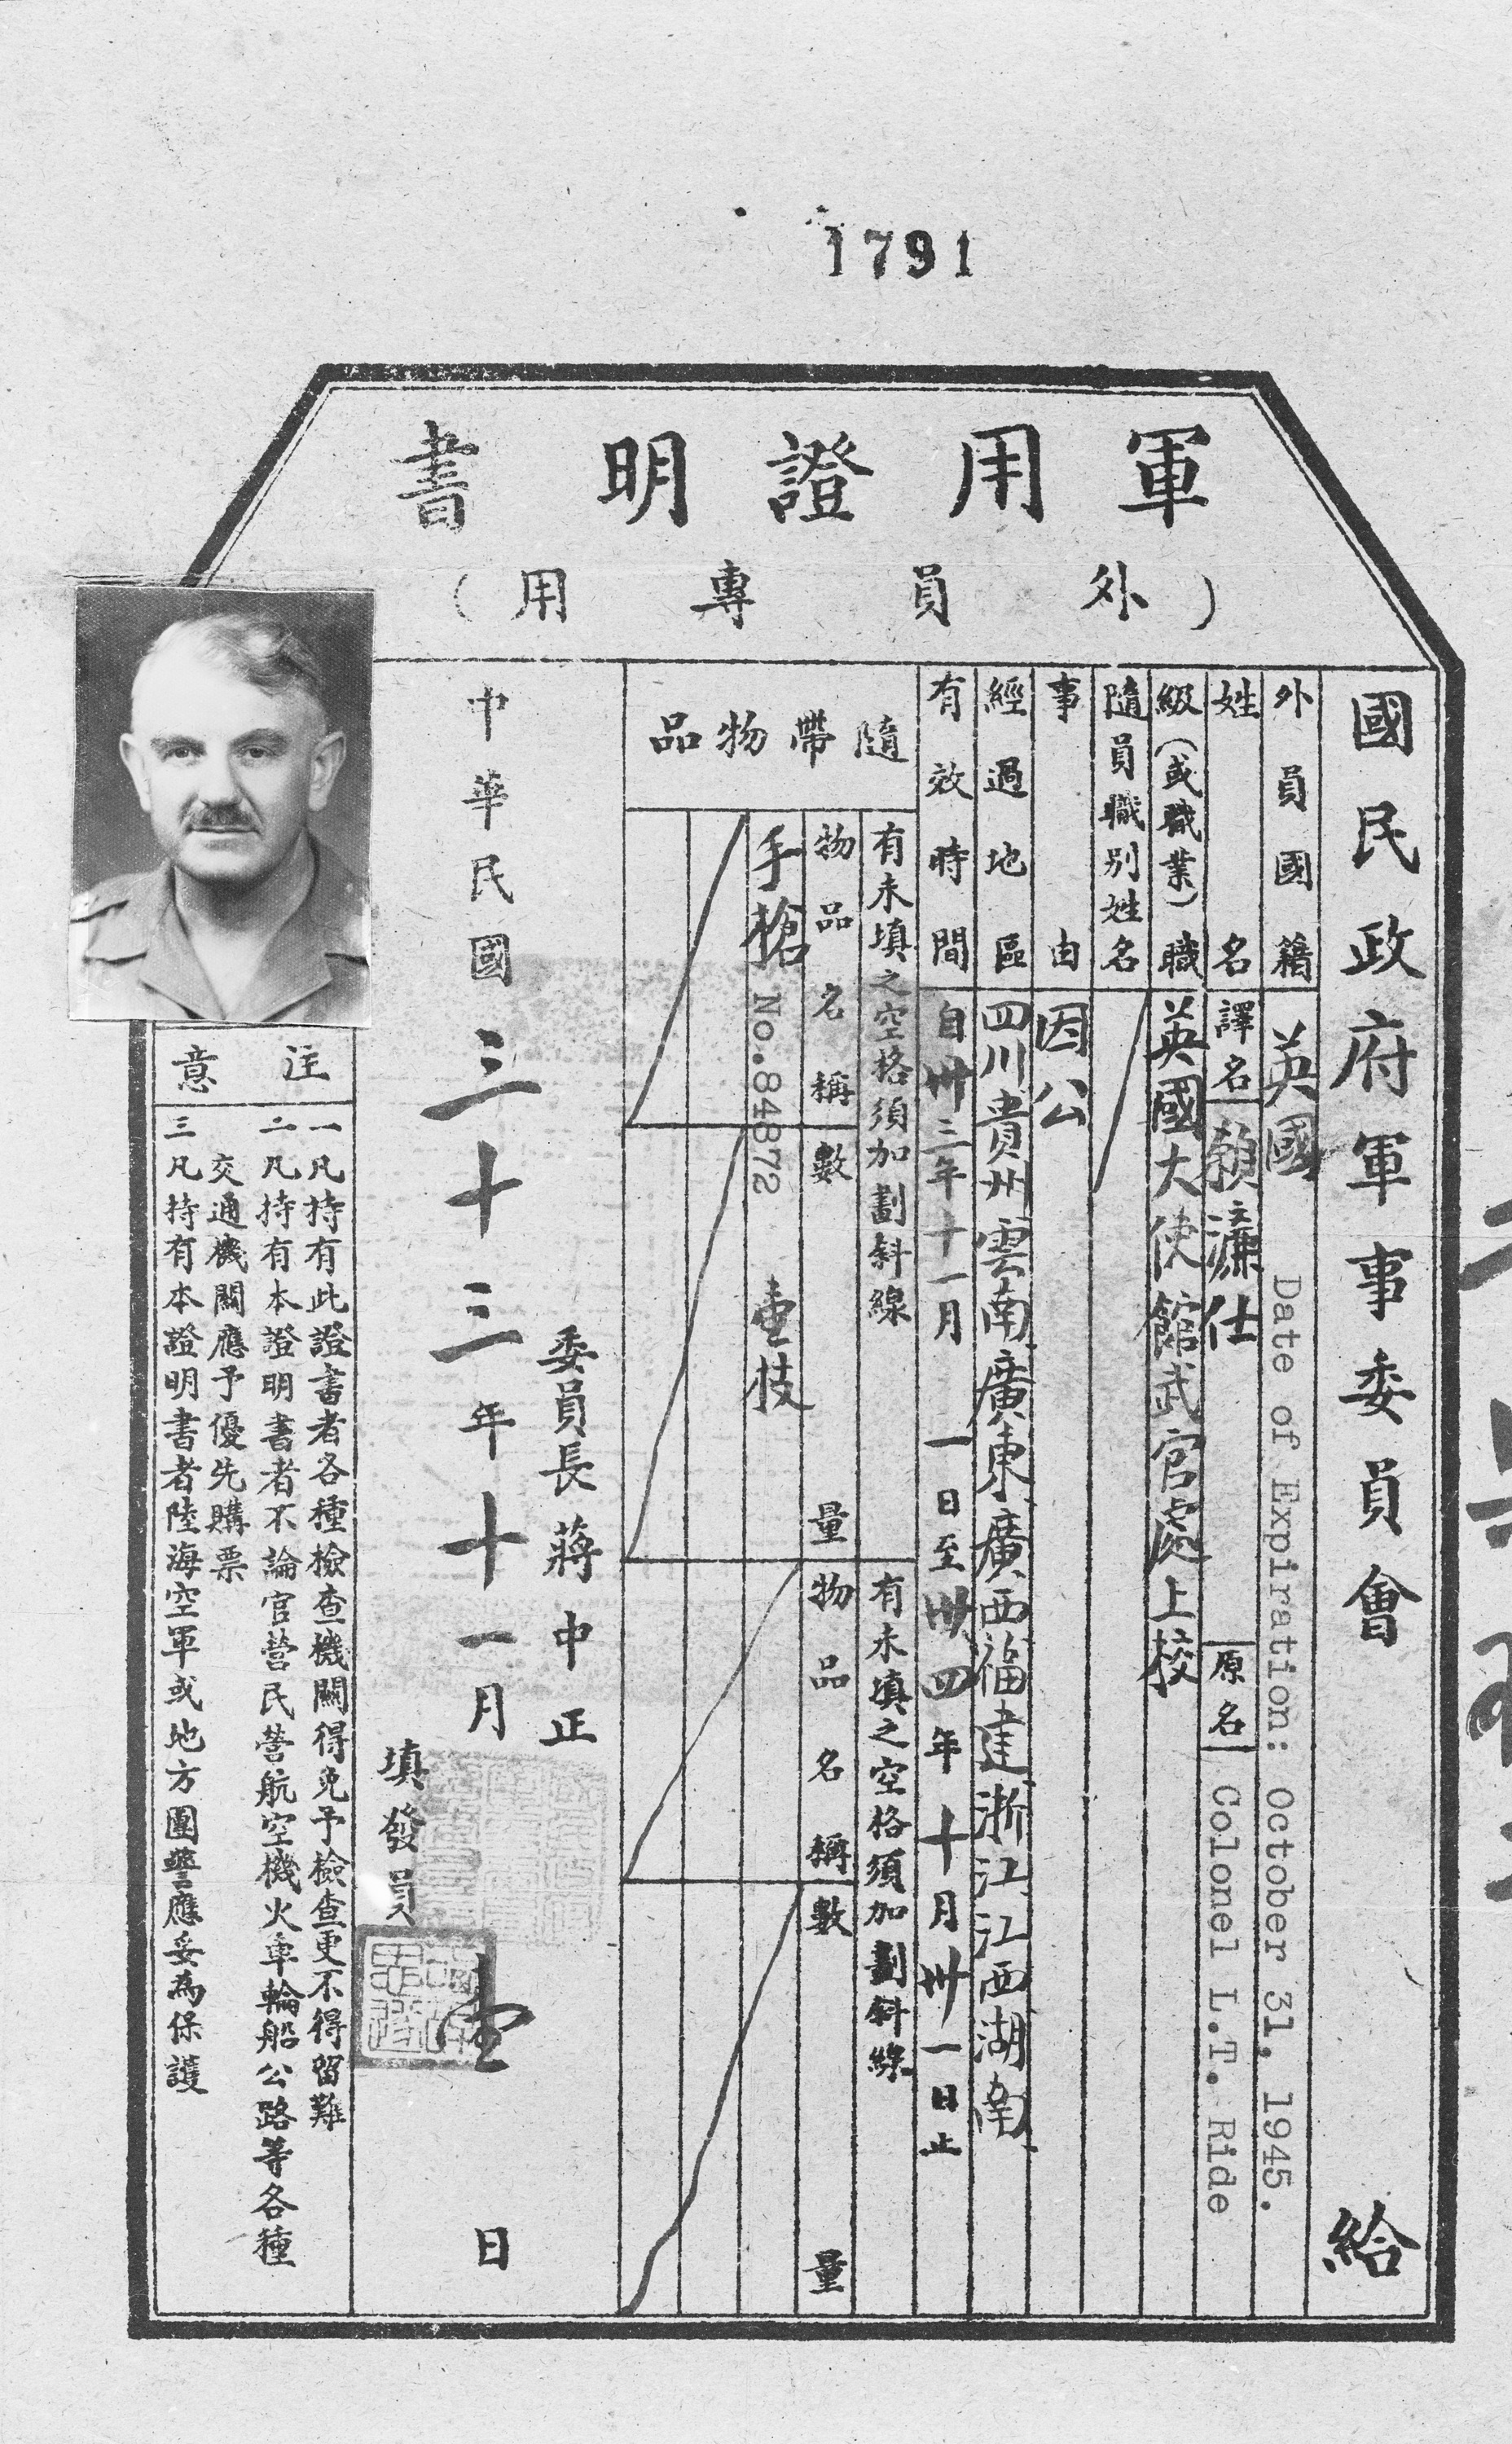 1791
軍用證明書
（外員專用）
國民政府軍事委員會　給
外員國籍　英國　Date of Expiration: October 31, 1945.
姓名　譯名　賴濂仕　原名　Colonel L.T. Ride
級（或職業）職　英國大使館武官處上校
隨員職別姓名
事由　因公
經過地區　四川貴州雲南廣東廣西福建浙江江西湖南
有效時間　自卅三年十一月一日至卅四年十月卅一日止
隨帶物品
有未填之空格須加劃斜線
有未填之空格須加劃斜線
物品名稱　數量　物品名稱　數量
手槍 No.84872　壹枝
委員長蔣中正
中華民國三十三年十一月壹日
填發員
注意
一凡持有此證書者各種檢查機關得免予檢查更不得留難
二凡持有本證明書者不論官營民營航空機火車輪船公路等各種
交通機關應予優先購票
三凡持有本證明書者陸海空軍或地方團警應妥為保護